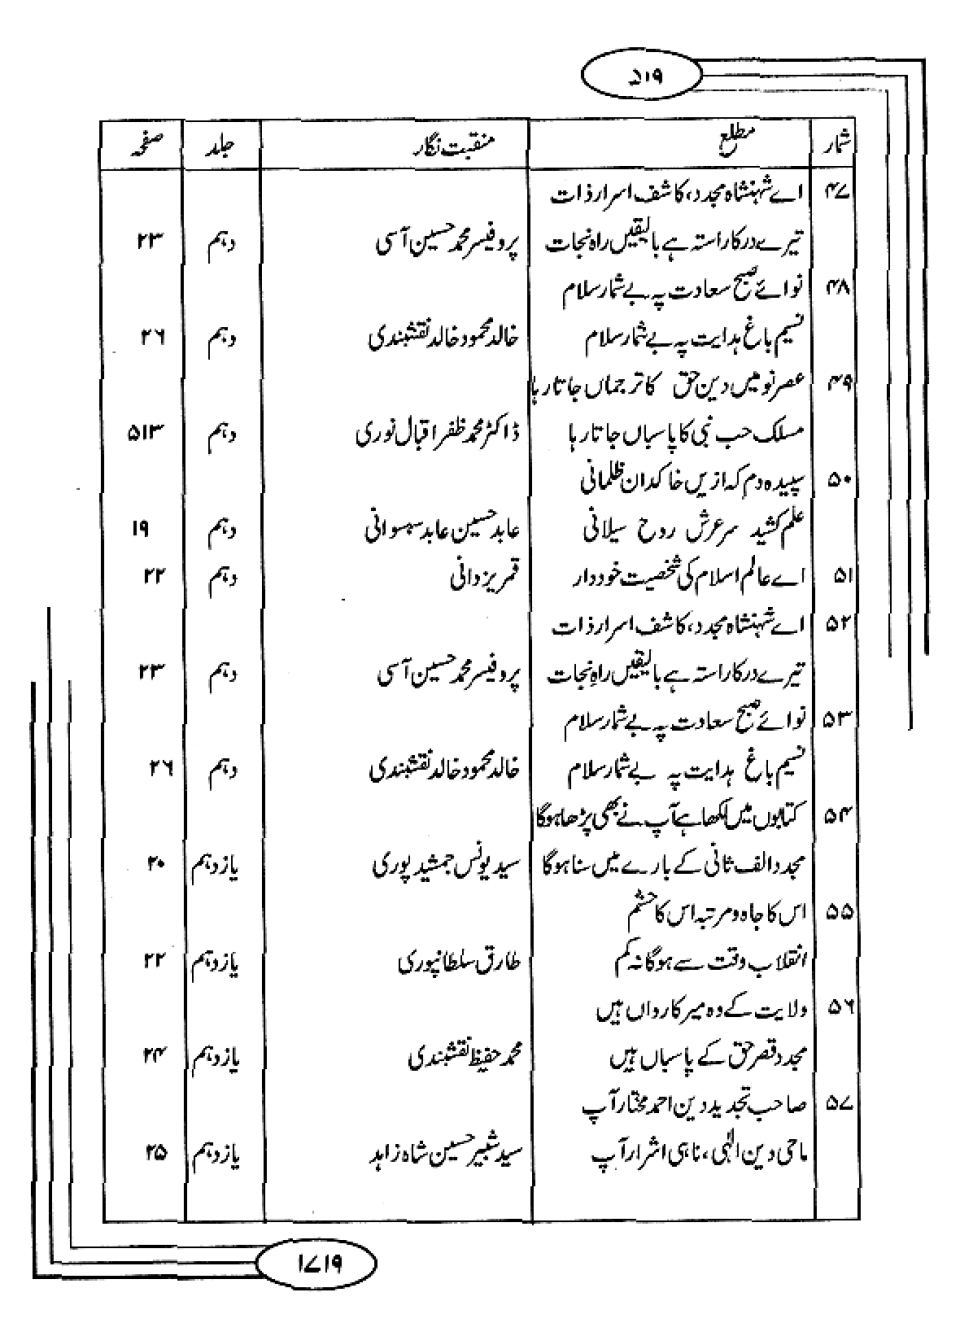 ۵۱۹
شمار مطلع منقبت نگار جلد صفحہ
۴۷ اے شہنشاہ مجدد، کاشف اسرار ذات
تیرے در کا راستہ ہے بالیقیں راہ نجات پروفیسر محمد حسین آسی دہم ۲۳
۴۸ نوائے صبح سعادت پہ بے شمار سلام
نسیم باغ ہدایت پہ بے شمار سلام خالد محمود خالد نقشبندی دہم ۲۶
۴۹ عصر نو میں دین حق کا ترجماں جاتا رہا
مسلک حب نبی کا پاسباں جاتا رہا ڈاکٹر محمد ظفر اقبال نوری دہم ۵۱۳
۵۰ سپیدہ دم کہ ازیں خاکدان ظلمانی
علم کشید سر عرش روح سیلانی عابد حسین عابد سہسوانی دہم ۱۹
۵۱ اے عالم اسلام کی شخصیت خوددار قمر یزدانی دہم ۲۲
۵۲ اے شہنشاہ مجدد، کاشف اسرار ذات
تیرے در کا راستہ ہے بالیقیں راہِ نجات پروفیسر محمد حسین آسی دہم ۲۳
۵۳ نوائے صبح سعادت پہ بے شمار سلام
نسیم باغ ہدایت پہ بے شمار سلام خالد محمود خالد نقشبندی دہم ۲۶
۵۴ کتابوں میں لکھا ہے آپ نے بھی پڑھا ہوگا
مجدد الف ثانی کے بارے میں سنا ہوگا سید یونس جمشید پوری یازدہم ۲۰
۵۵ اس کا جاہ و مرتبہ اس کا حشم
انقلاب وقت سے ہوگا نہ کم طارق سلطانپوری یازدہم ۲۲
۵۶ ولایت کے وہ میر کارواں ہیں
مجدد قصر حق کے پاسباں ہیں محمد حفیظ نقشبندی یازدہم ۲۴
۵۷ صاحب تجدید دین احمد مختار آپ
ماحی دین الٰہی، ناہی اشرار آپ سید شبیر حسین شاہ زاہد یازدہم ۲۵
۱۷۱۹